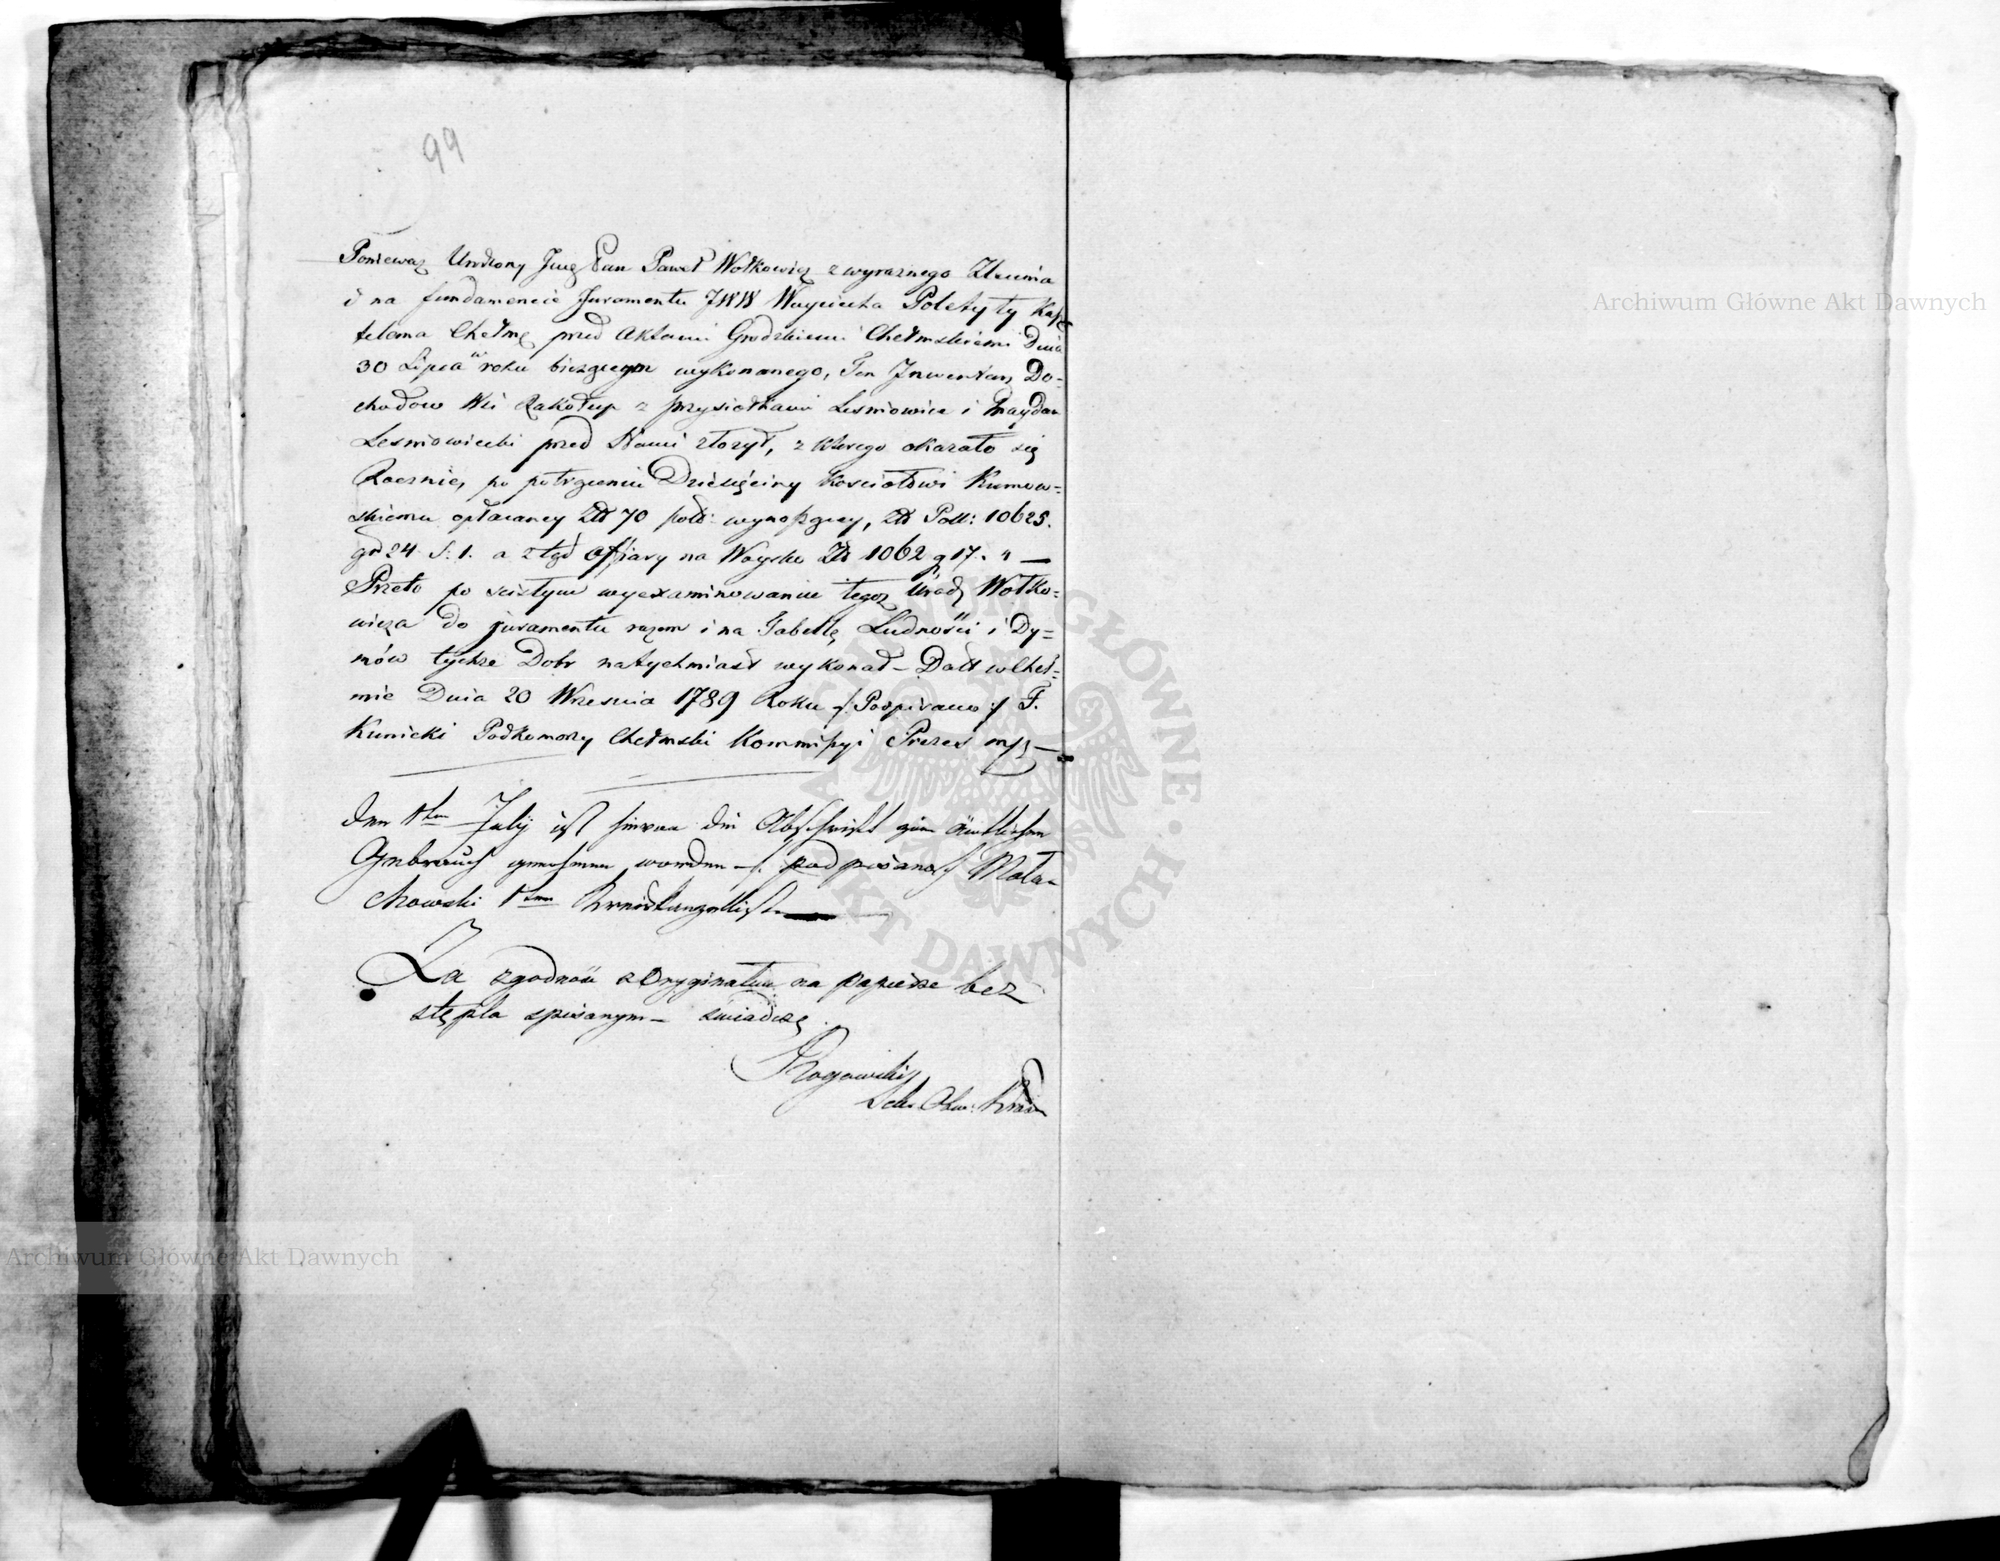 99
Ponieważ Urodzony Jmć Pan Paweł Wołkowicz z wyraznego Zlecenia
i na fundamencie Juramentu JWW Woyciecha Poletyły Kasz-
telana Chełmę przed Aktami Grodzkiemi Chełmskiemi Dnia
30 Lipca roku bieżącym wykonanego, Ten Jnwentarz Do=
chodow Wsi Rakołup z przysiołkami Lesniowice i Maydan
Lesniowiecki przed Nami złozył, z ktorego okazało się
Rocznie, po potrąceniu Dziesięciny Kościołowi Kumow=
skiemu opłacaney Zł 70 pols: wynoszącey, Zł Pols: 10625.
gr 24 s: 1. a z tąd offiary na Woysko Zł 1062 g 17. "
Przeto po scisłym wyexaminowaniu tegoż Urodz Wołko=
wicza do juramentu razem i na Tabellę Ludności i Dy=
mów tychże Dobr natychmiast wykonał – Datt w Cheł=
mie Dnia 20 Wrzesnia 1789 Roku /: Podpisano :/ F.
Kunicki Podkomorzy Chełmski Kommissyi Prezes mp
den 1ten July ist hievon die Abschrift zum ämtlichen
Gebrauch genohmen worden – /: podpisano :/ Mała-
chowski 1ter Kreiskanzellist
Za zgodność z Oryginałem na papierze bez
stępla spisanym – świadczę.
Rogowski
Archiwum Główne Akt Dawnych
Archiwum Główne Akt Dawnych
ARCHIWUM GŁÓWNE · AKT DAWNYCH ·